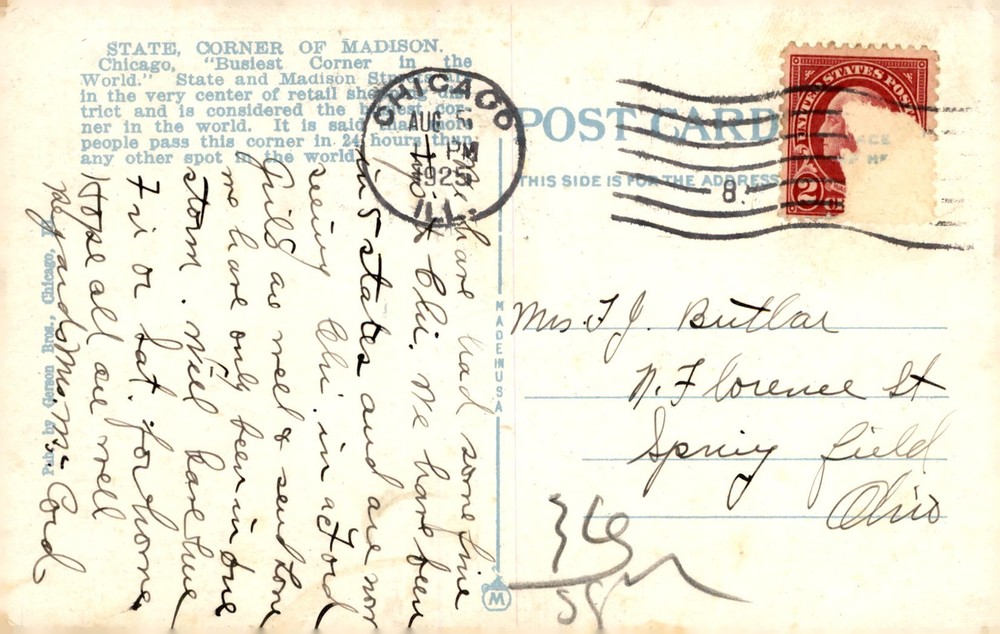 STATE, CORNER OF MADISON.
Chicago, "Busiest Corner in the
World." State and Madison Streets
in the very center of retail shopping dis-
trict and is considered the busiest cor-
ner in the world. It is said that more
people pass this corner in 24 hours than
any other spot in the world.
Pub. by Gerson Bros., Chicago,
CHICAGO
AUG 5
PM
1925
ILL.
have had some fine
Chi. We have been
in 5 states and are now
seeing Chi. in a Ford
Girls are well & send love
we have only been in one
storm. Will leave here
Fri or Sat. for home
Hope all are well
Regards Mrs. Mc Cord
MADE IN USA
M
POST CARD
THIS SIDE IS FOR THE ADDRESS
8.
UNITED STATES POST
2
Mrs. F J. Butlar
N. Florence St
Spring field
Ohio
58